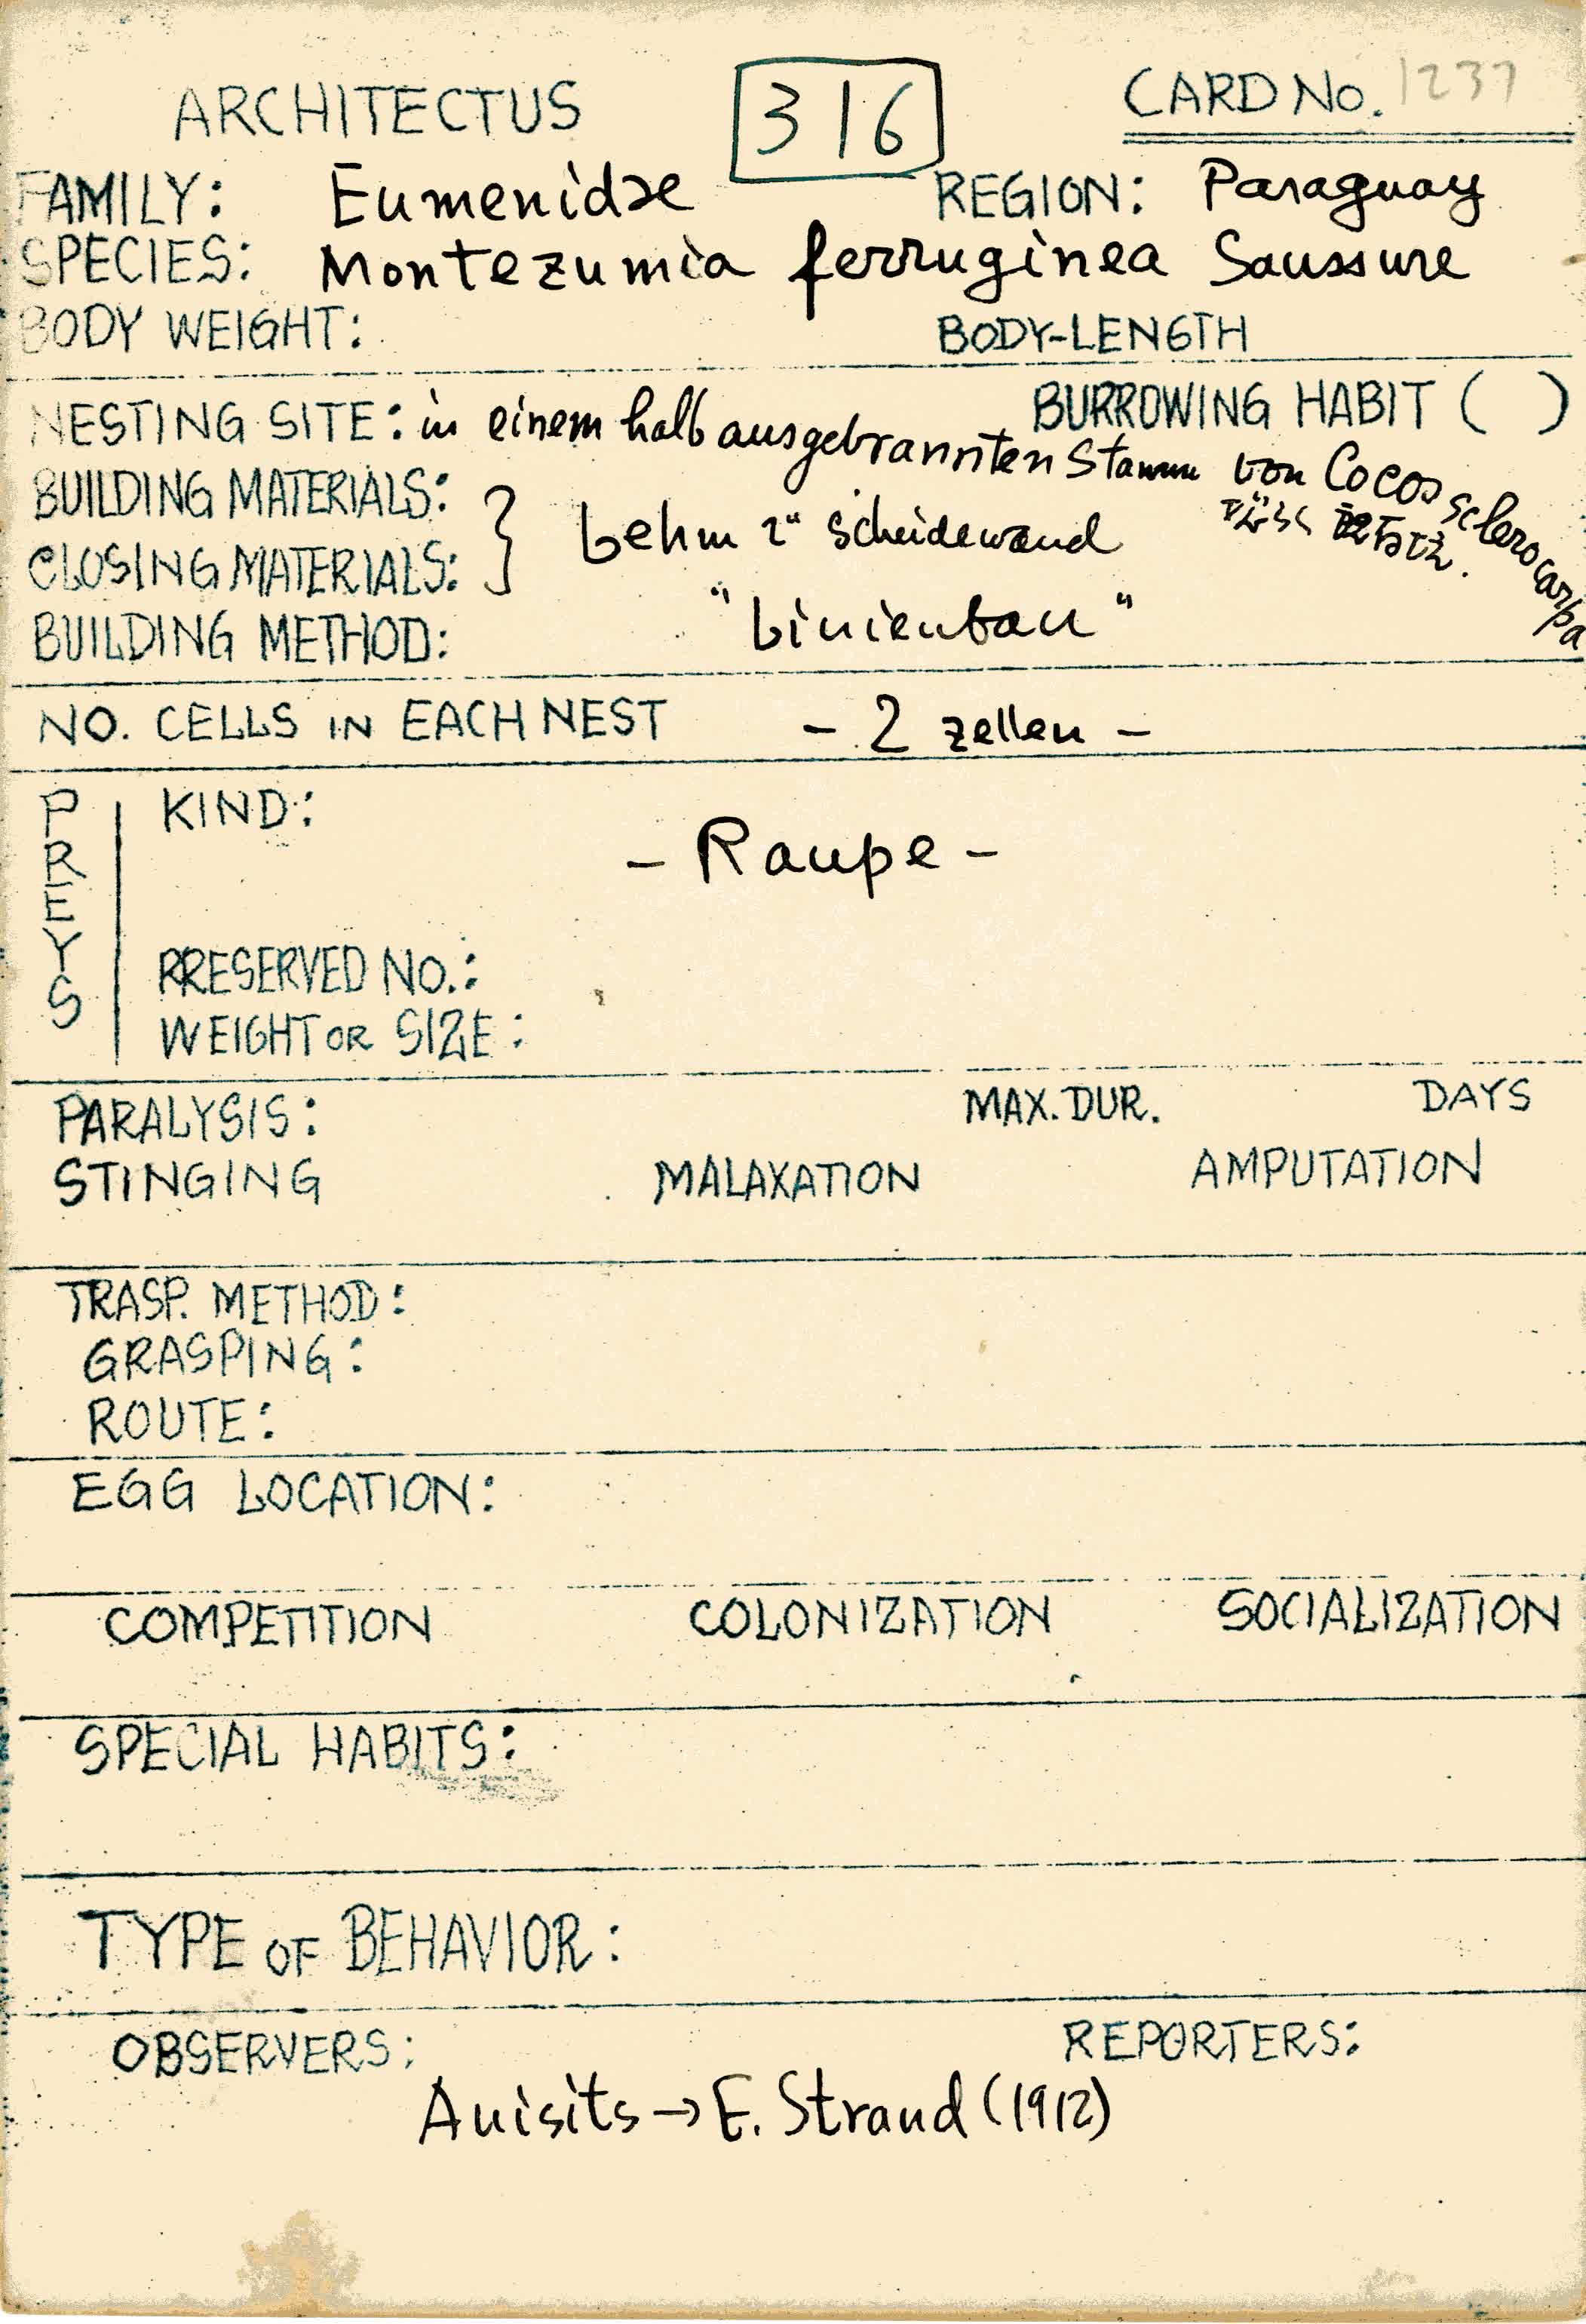 ARCHITECTUS 316 CARD No. 1237
FAMILY: Eumenidae REGION: Paraguay
SPECIES: Montezumia ferruginea Saussure
BODY WEIGHT: BODY-LENGTH
BURROWING HABIT ( )
NESTING SITE: in einem halb ausgebrannten Stamm von Cocos sclerocarpa
BUILDING MATERIALS:
CLOSING MATERIALS: } Lehm Scheidewand
BUILDING METHOD: "Linienbau"
NO. CELLS IN EACH NEST - 2 zellen -
PREYS
KIND:
- Raupe -
PRESERVED NO.:
WEIGHT OR SIZE:
PARALYSIS: MAX. DUR. DAYS
STINGING MALAXATION AMPUTATION
TRASP. METHOD:
GRASPING:
ROUTE:
EGG LOCATION:
COMPETITION COLONIZATION SOCIALIZATION
SPECIAL HABITS:
TYPE OF BEHAVIOR:
OBSERVERS: REPORTERS:
Anisits → E. Strand (1912)